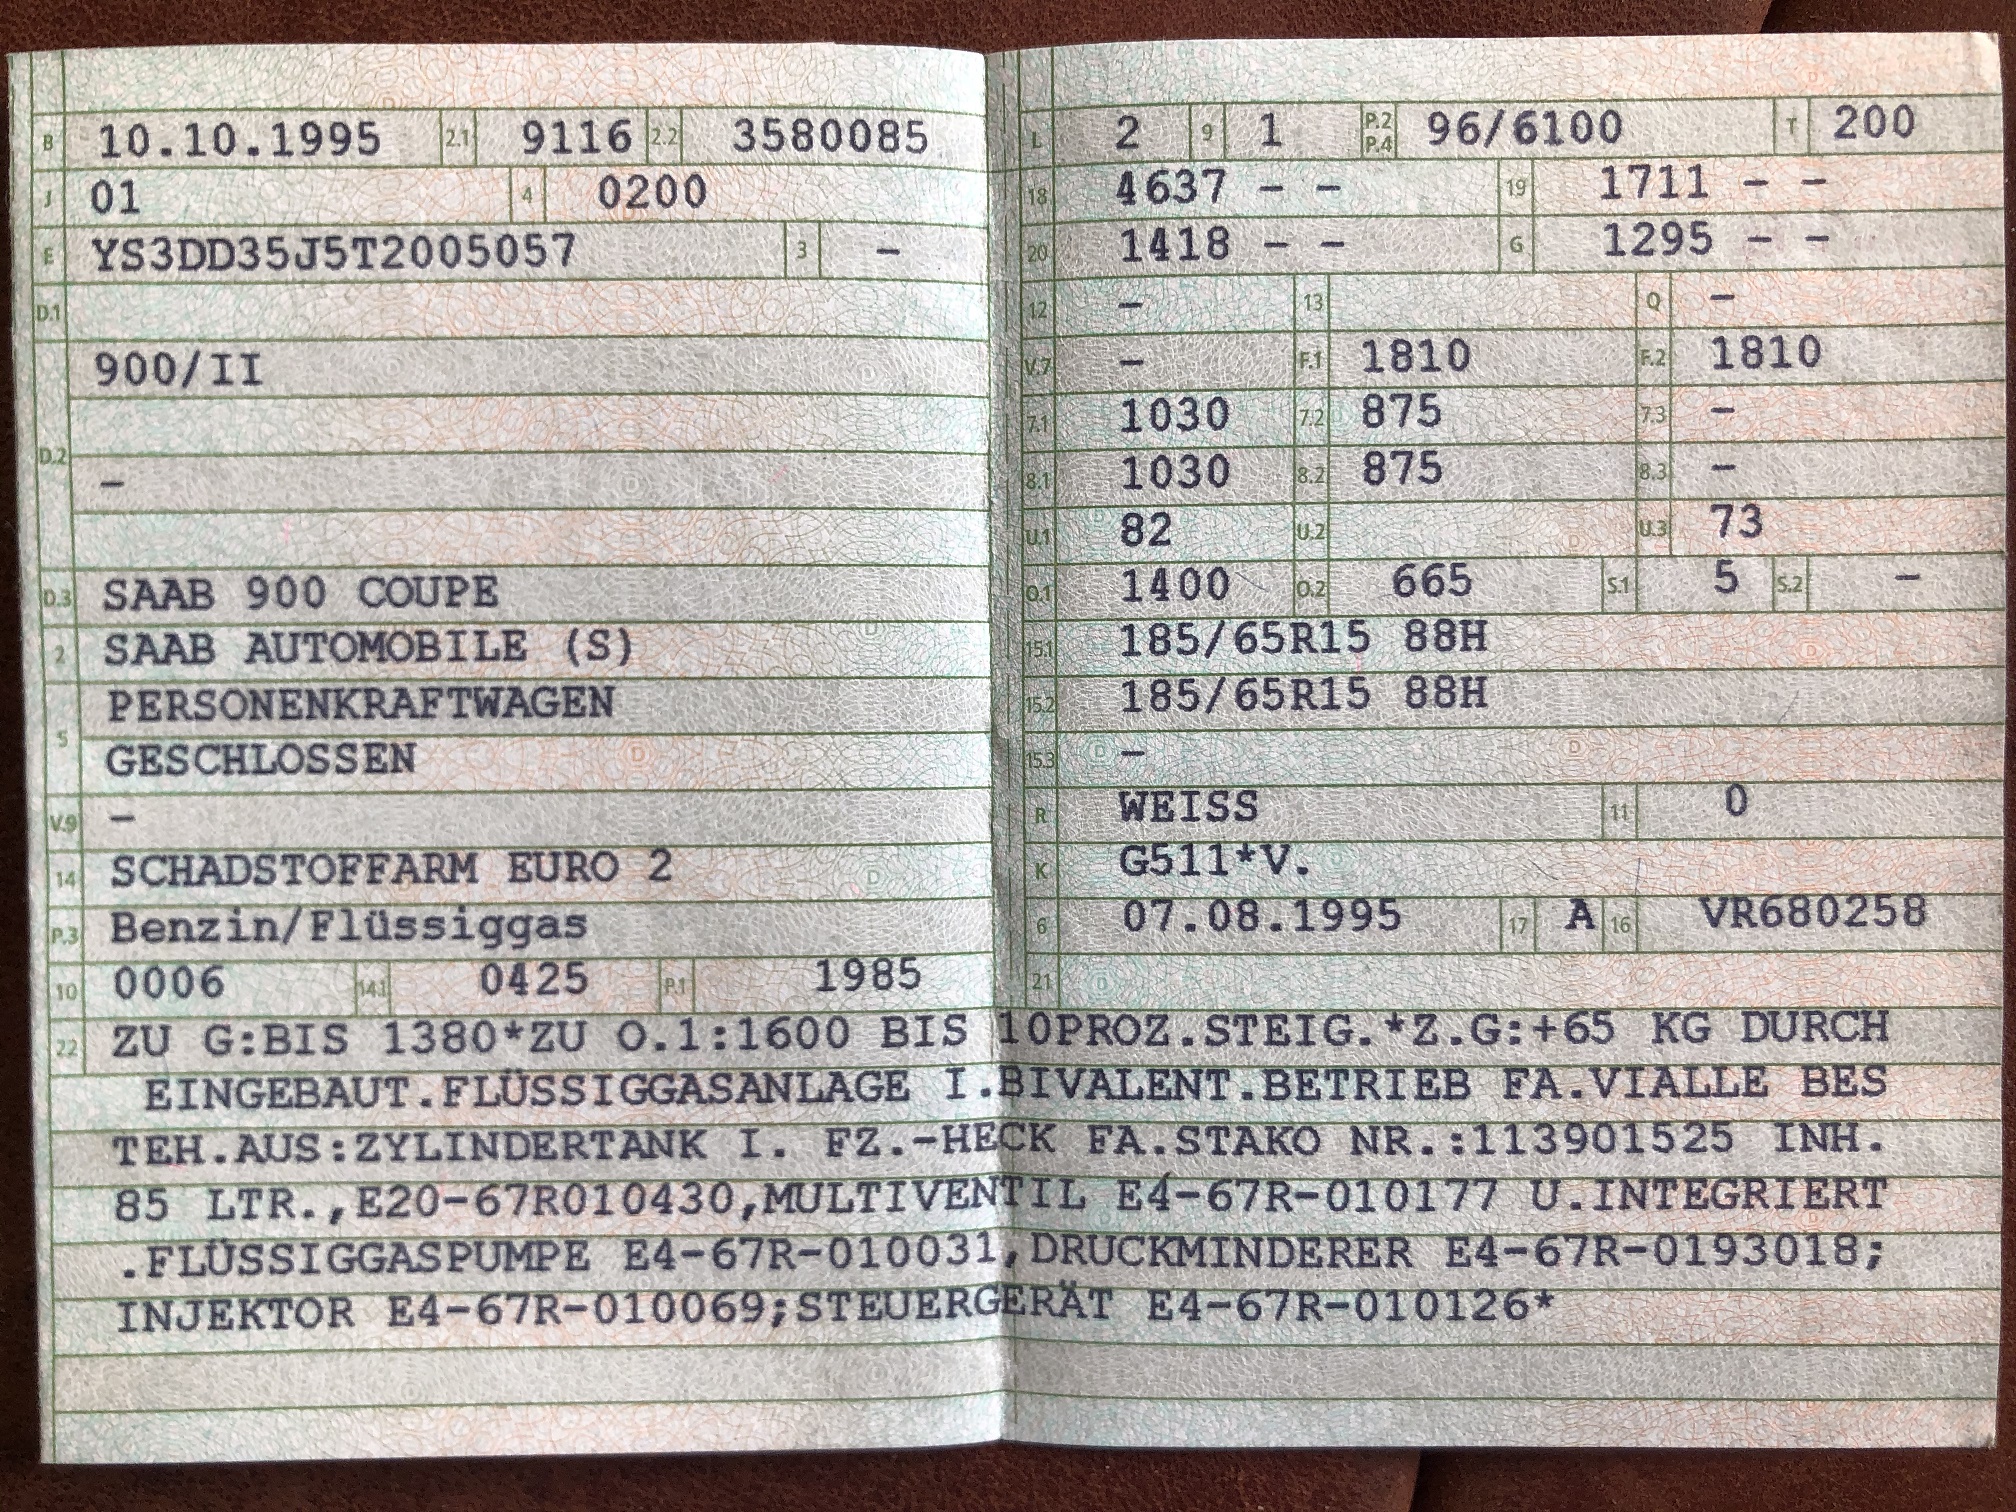 B 10.10.1995 2.1 9116 2.2 3580085
J 01 4 0200
E YS3DD35J5T2005057 3 –
D.1
900/II
D.2
–
D.3 SAAB 900 COUPE
2 SAAB AUTOMOBILE (S)
PERSONENKRAFTWAGEN
5
GESCHLOSSEN
V.9 –
14 SCHADSTOFFARM EURO 2
P.3 Benzin/Flüssiggas
10 0006 14.1 0425 P.1 1985
L 2 9 1 P.2 P.4 96/6100 T 200
18 4637 – – 19 1711 – –
20 1418 – – G 1295 – –
12 – 13 Q –
V.7 – F.1 1810 F.2 1810
7.1 1030 7.2 875 7.3 –
8.1 1030 8.2 875 8.3 –
U.1 82 U.2 U.3 73
O.1 1400 O.2 665 S.1 5 S.2 –
15.1 185/65R15 88H
15.2 185/65R15 88H
15.3 –
R WEISS 11 0
K G511*V.
6 07.08.1995 17 A 16 VR680258
21
22 ZU G:BIS 1380*ZU O.1:1600 BIS 10PROZ.STEIG.*Z.G:+65 KG DURCH
EINGEBAUT.FLÜSSIGGASANLAGE I.BIVALENT.BETRIEB FA.VIALLE BES
TEH.AUS:ZYLINDERTANK I. FZ.-HECK FA.STAKO NR.:113901525 INH.
85 LTR.,E20-67R010430,MULTIVENTIL E4-67R-010177 U.INTEGRIERT
.FLÜSSIGGASPUMPE E4-67R-010031,DRUCKMINDERER E4-67R-0193018;
INJEKTOR E4-67R-010069;STEUERGERÄT E4-67R-010126*